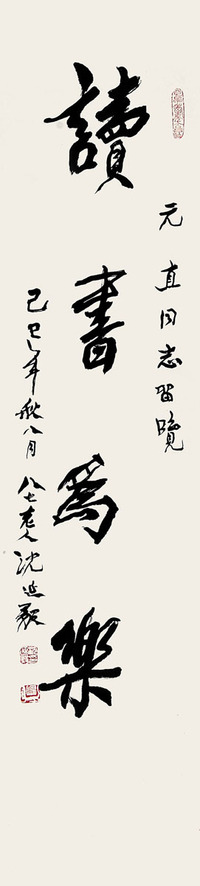 元直同志留覽
讀書為樂
己巳年秋八月八七老人沈延毅